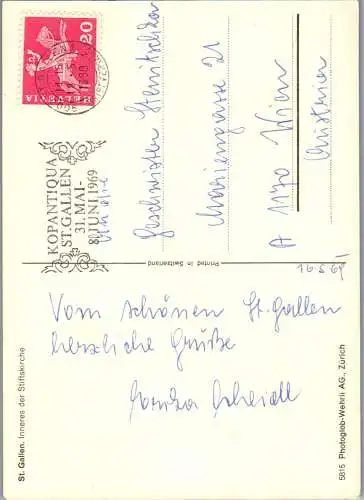 HELVETIA
20
KOPANTIQUA
ST. GALLEN
31. MAI-
8. JUNI 1969
Geschwister Stenitschka
Mariengasse 21
A 1170 Wien
Austria
Printed in Switzerland
16 5 69
Vom schönen St. Gallen
herzliche Grüße
St. Gallen. Inneres der Stiftskirche
5815 Photoglob-Wehrli AG., Zürich